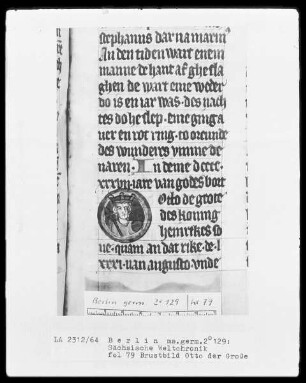 stephanus dar na marin
An den tiden wart enem
manne de hant af ghe sla
ghen de wart eme weder
do is en iar was. des nach
tes do he slep. eine ging a
uer en rot ring. to orcunde
des wunderes vmme de
naren. In deme dcccc.
xxxvii. iare van godes bort
Otto de grote
des koning
henrikes so
ne. quam an dat rike. de. l
xxxi. van augusto. vnde
Berlin germ. 2° 129 fol 79
LA 2312/64 Berlin ms.germ.2° 129:
Sächsische Weltchronik
fol 79 Brustbild Otto der Große